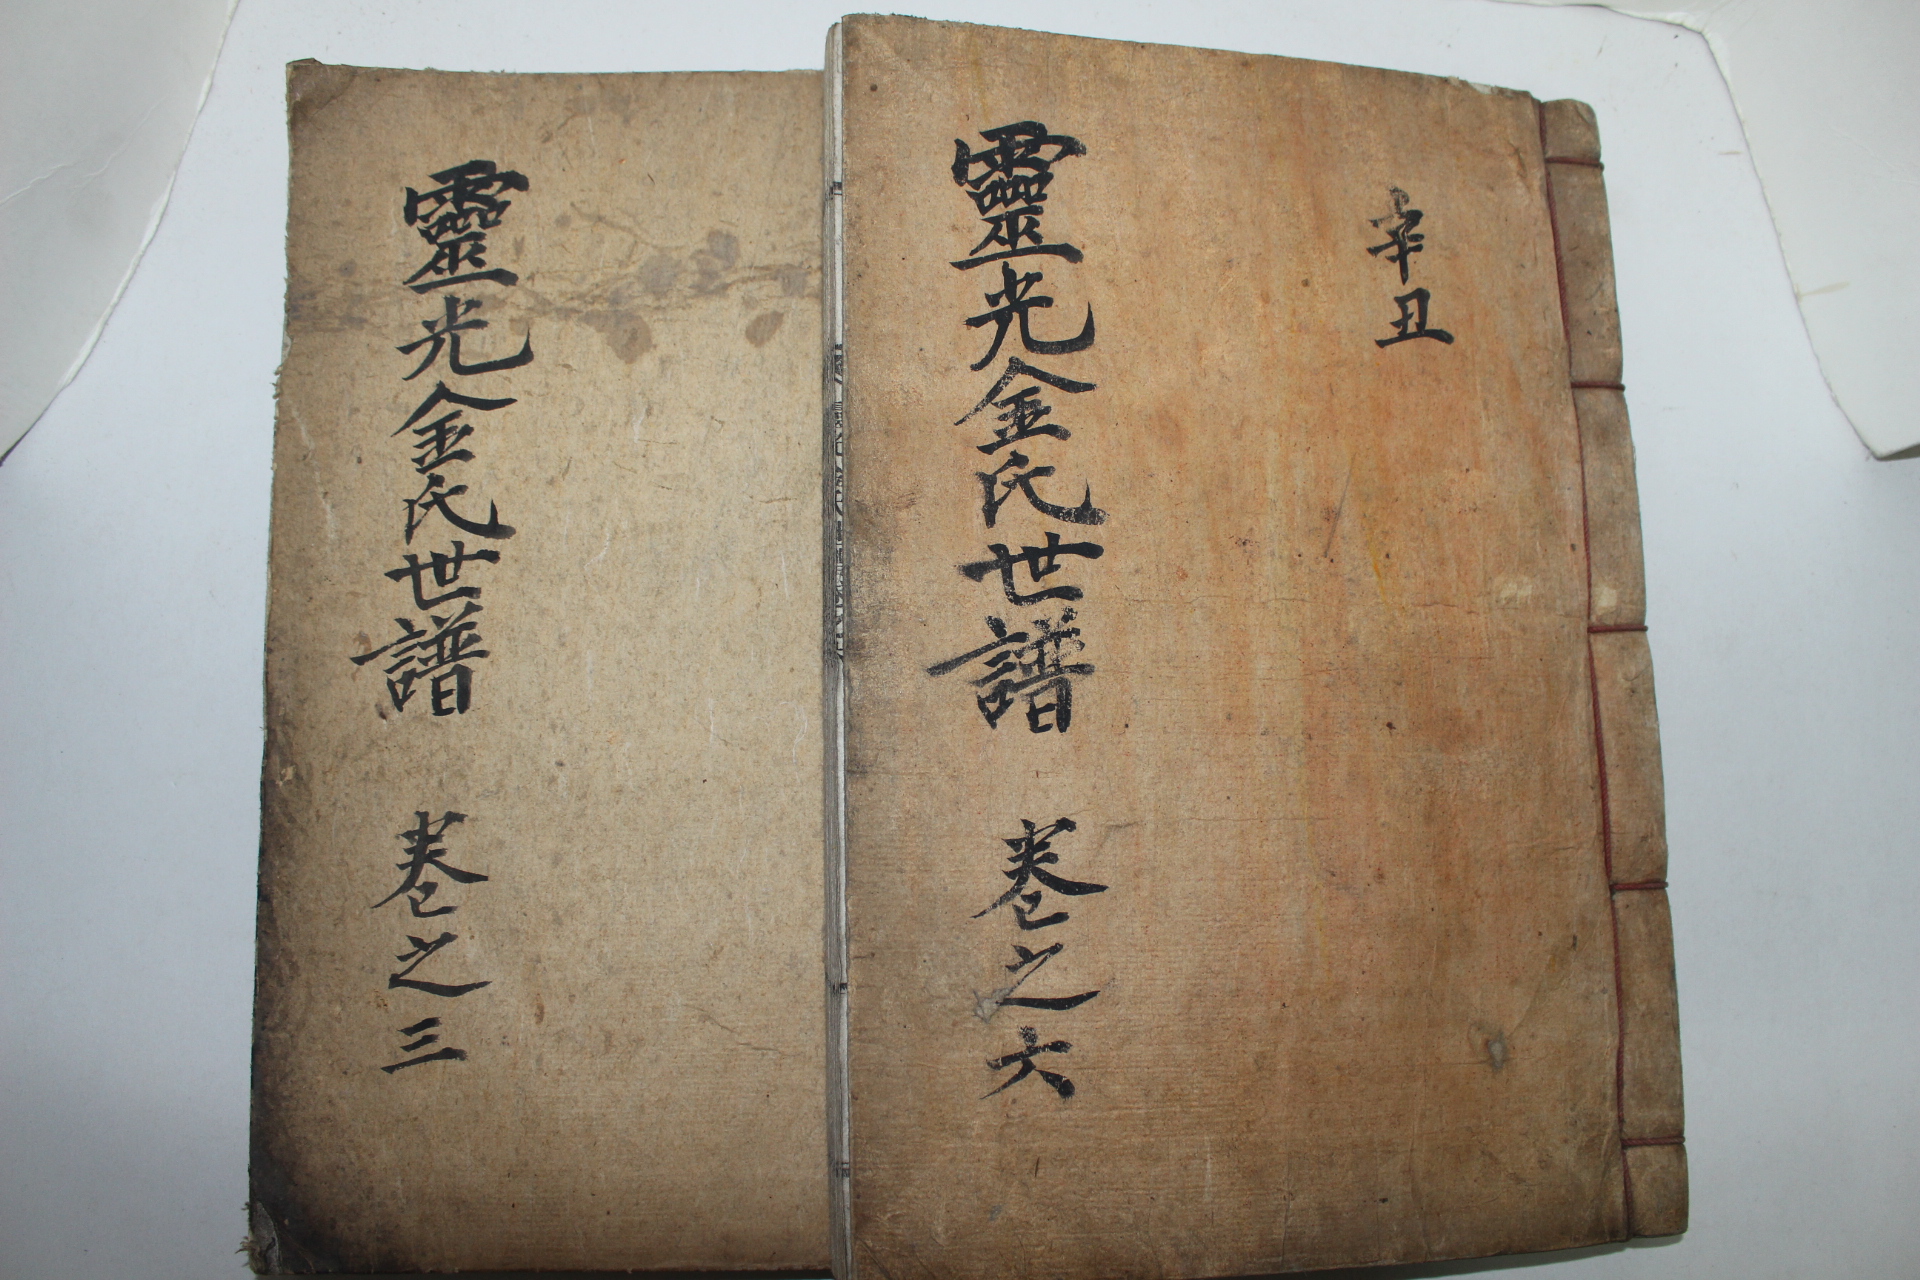 辛丑
靈光金氏世譜 卷之六
靈光金氏世譜 卷之三